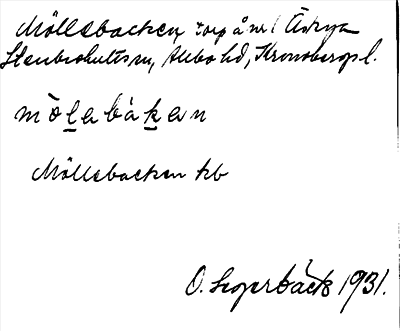 Möllebacken, torp å nr 1 Äskya
Stenbrohults sn, Allbo hd, Kronobergs l.
mòlabàkan
Möllebacken kb
O. Segerbäck 1931.